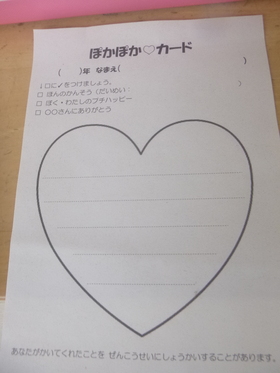 ぽかぽか♡カード
(　　)年 なまえ(　　　　　　　)
↓□に✓をつけましょう。
□ ほんのかんそう（だいめい：　　　　　　　）
□ ぼく・わたしのプチハッピー
□ 〇〇さんにありがとう
あなたがかいてくれたことを ぜんこうせいにしょうかいすることがあります。